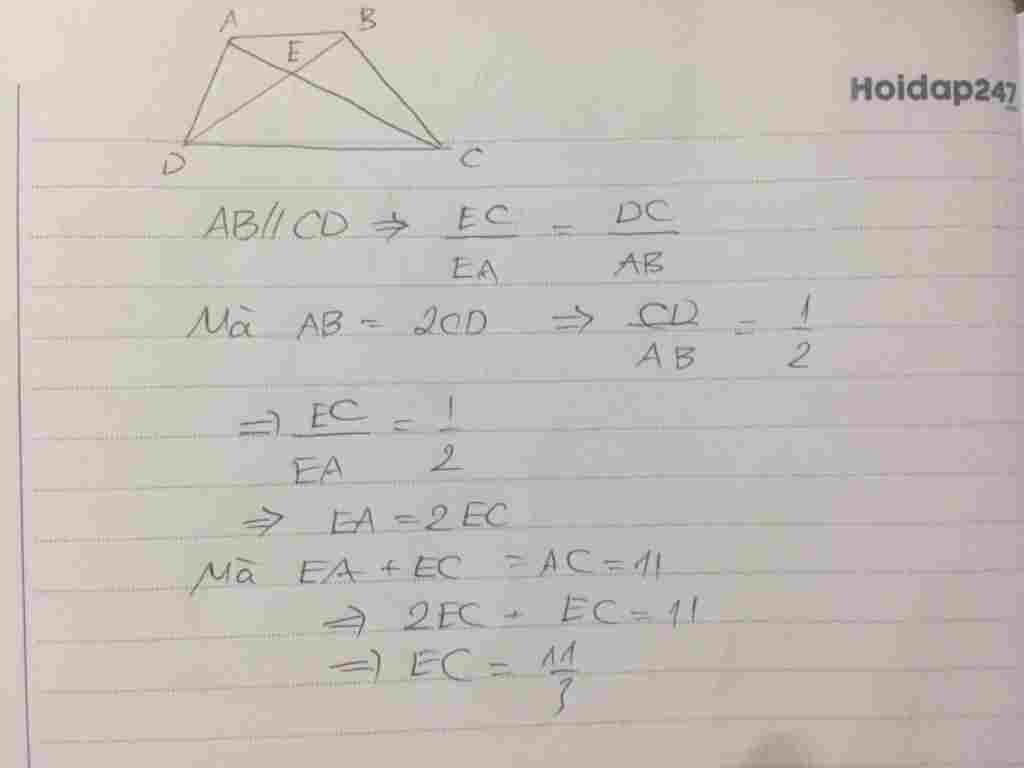 A B
E
Hoidap247
D C
AB // CD ⇒ EC/EA = DC/AB
Mà AB = 2CD ⇒ CD/AB = 1/2
⇒ EC/EA = 1/2
⇒ EA = 2EC
Mà EA + EC = AC = 11
⇒ 2EC + EC = 11
⇒ EC = 11/3